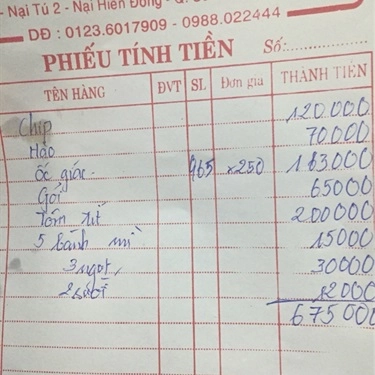 - Nại Tú 2 - Nại Hiên Đông -
DĐ : 0123.6017909 - 0988.022444
PHIẾU TÍNH TIỀN Số:
TÊN HÀNG ĐVT SL Đơn giá THÀNH TIỀN
Chip 120.000
Hào 70000
ốc giác 965 x250 163000
Gỏi 65000
Tôm tít 200000
5 bánh mì 15000
3 ngọt 30000
2 suối 12000
675000